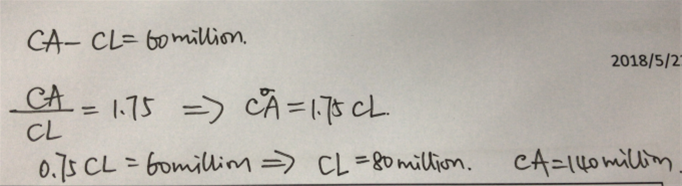 CA - CL = 60 million.
2018/5/2
CA/CL = 1.75 => CA = 1.75 CL.
0.75 CL = 60 million => CL = 80 million. CA = 140 million.